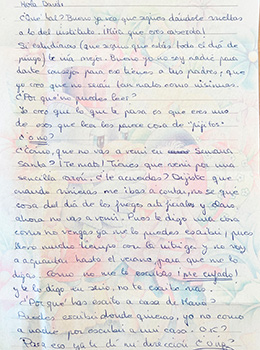 Hola David:
¿Qué tal? Bueno ya veo que sigues dándole vueltas
a lo del instituto. ¡Mira que eres
Si estudiaras (que seguro que estás todo el día de
) te iría mejor. Bueno yo no soy nadie para
darte consejos para eso tienes a tus padres, que
yo creo que no serán tan malos como
¿Por qué no puedes leer?
Yo creo que lo que te pasa es que eres uno
de esos que lee los
¿O no?
¿Cómo, que no vas a venir en Semana
Santa? ¡Te mato! Tienes que venir por una
sencilla razón. ¿te acuerdas? Dijiste que
cuando vinieras me ibas a contar, no se que
cosa del día de los fuegos artificiales y claro,
ahora no vas a venir. Pues te digo una cosa
como no vengas ya me lo puedes escribir, pues
llevo mucho tiempo con la intriga y no voy
a aguantar hasta el verano para que me lo
digas. Como no me lo escribas ¡Me enfado!
y te lo digo en serio, no te escribo más.
¿Por qué has escrito a casa de
Puedes escribir donde quieras, yo no como
a nadie por escribir a mi casa. O.K?
Para eso ya te di mi dirección ¿O no?